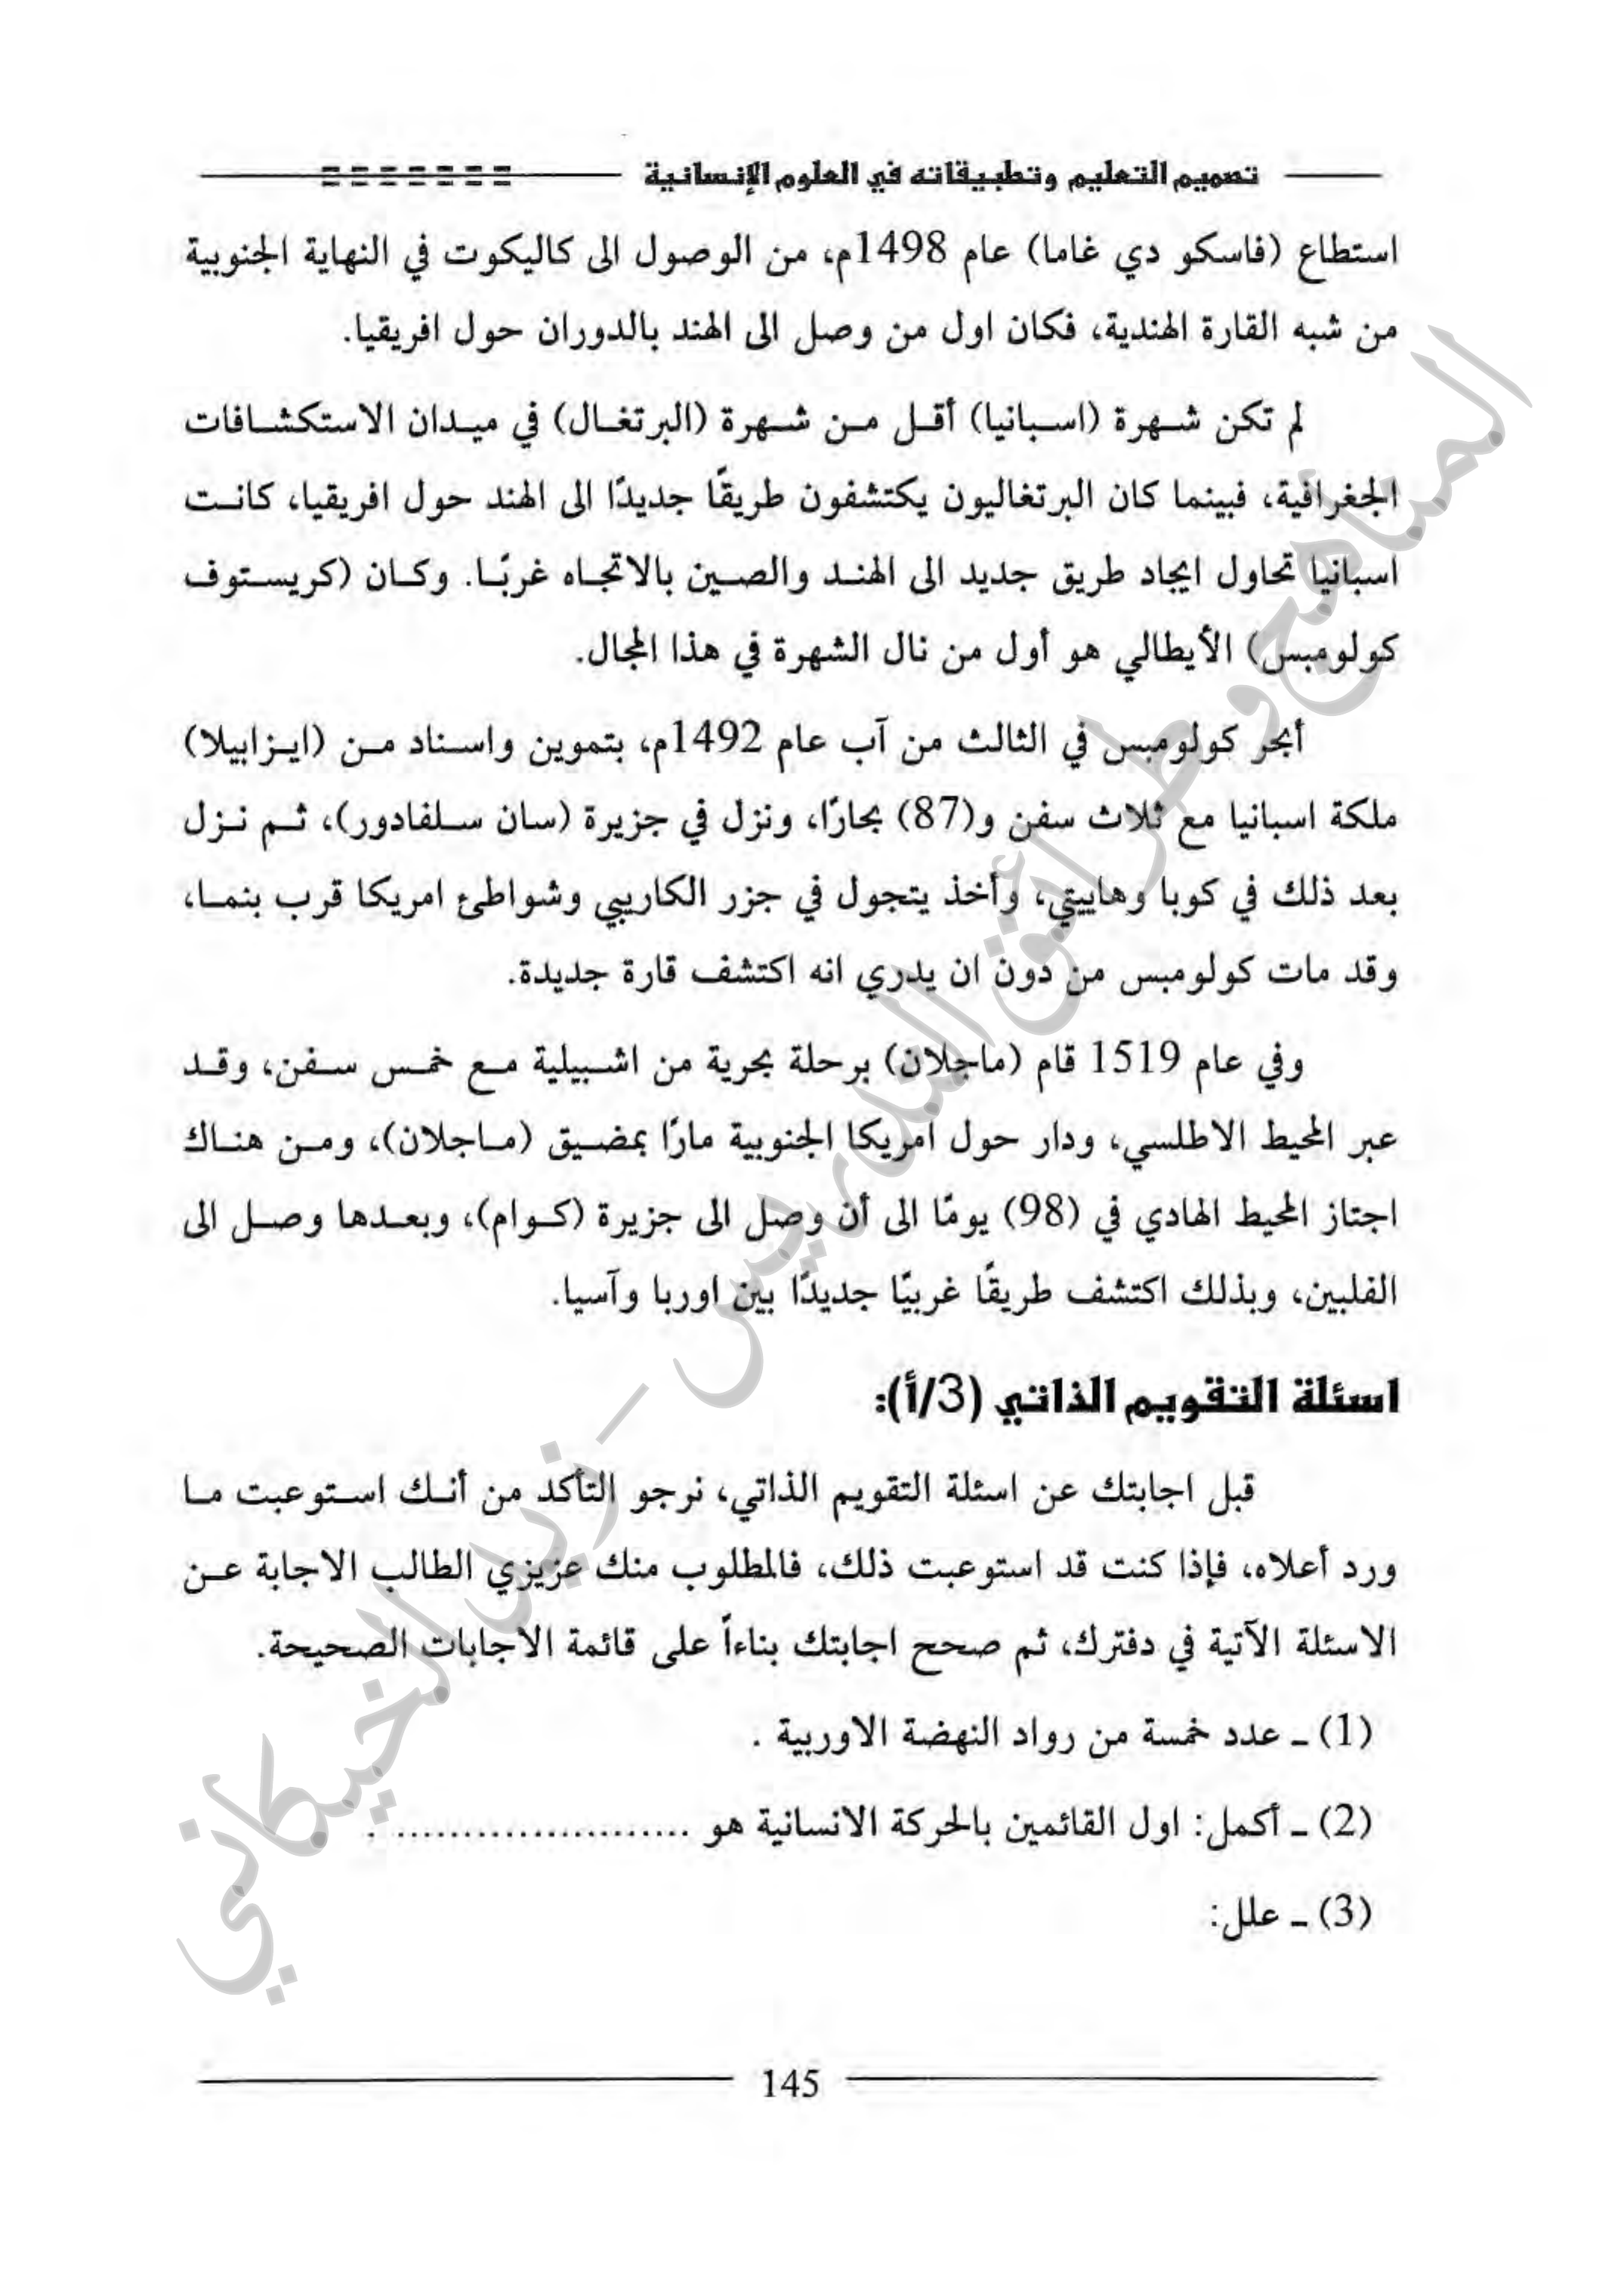 تصميم التعليم وتطبيقاته في العلوم الإنسانية
استطاع (فاسكو دي غاما) عام 1498م، من الوصول الى كاليكوت في النهاية الجنوبية
من شبه القارة الهندية، فكان اول من وصل الى الهند بالدوران حول افريقيا.
لم تكن شهرة (اسبانيا) أقل من شهرة (البرتغال) في ميدان الاستكشافات
الجغرافية، فبينما كان البرتغاليون يكتشفون طريقًا جديدًا الى الهند حول افريقيا، كانت
اسبانيا تحاول ايجاد طريق جديد الى الهند والصين بالاتجاه غربًا. وكان (كريستوف
كولومبس) الأيطالي هو أول من نال الشهرة في هذا المجال.
أبحر كولومبس في الثالث من آب عام 1492م، بتموين واسناد من (ايزابيلا)
ملكة اسبانيا مع ثلاث سفن و(87) بحارًا، ونزل في جزيرة (سان سلفادور)، ثم نزل
بعد ذلك في كوبا وهاييتي، وأخذ يتجول في جزر الكاريبي وشواطئ امريكا قرب بنما،
وقد مات كولومبس من دون ان يدري انه اكتشف قارة جديدة.
وفي عام 1519 قام (ماجلان) برحلة بحرية من اشبيلية مع خمس سفن، وقد
عبر المحيط الاطلسي، ودار حول امريكا الجنوبية مارًا بمضيق (ماجلان)، ومن هناك
اجتاز المحيط الهادي في (98) يومًا الى أن وصل الى جزيرة (كوام)، وبعدها وصل الى
الفلبين، وبذلك اكتشف طريقًا غربيًا جديدًا بين اوربا وآسيا.
اسئلة التقويم الذاتي (3/أ):
قبل اجابتك عن اسئلة التقويم الذاتي، نرجو التأكد من أنك استوعبت ما
ورد أعلاه، فإذا كنت قد استوعبت ذلك، فالمطلوب منك عزيزي الطالب الاجابة عن
الاسئلة الآتية في دفترك، ثم صحح اجابتك بناءاً على قائمة الاجابات الصحيحة.
(1) ـ عدد خمسة من رواد النهضة الاوربية .
(2) ـ أكمل: اول القائمين بالحركة الانسانية هو ...................... .
(3) ـ علل:
145
المناهج وطرائق التدريس – زيد الخيكاني